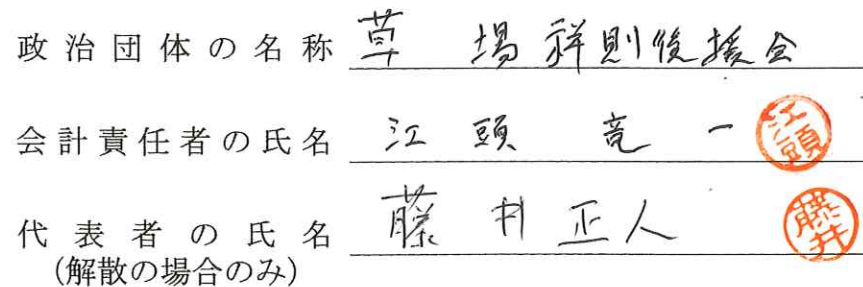 政治団体の名称 草場祥則後援会
会計責任者の氏名 江頭竜一 江頭
代表者の氏名 藤井正人 藤井
(解散の場合のみ)